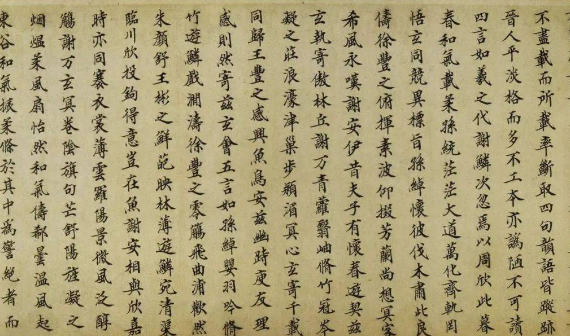 不盡載而所載率斷取四句韻語皆蹤跡
晉人平淡格而多不工本亦謭陋不可讀
四言如羲之代謝鱗次忽焉以周欣此暮
春和氣載柔孫統茫茫大道萬化齊軌罔
悟玄同競異標旨孫綽懷彼伐木肅此良
儔徐豐之俯揮素波仰掇芳蘭尚想冥客
希風永嘆謝安伊昔夫子有懷春遊契茲
玄執寄傲林丘謝万青蘿翳岫脩竹冠岑
凝之莊浪濠津巢步潁湄冥心玄寄千載
同歸王豐之感興魚鳥安茲幽時庾友理
感則然寄茲玄會五言如孫綽嬰羽吟脩
竹遊鱗戲瀾濤徐豐之零觴飛曲浦歡然
朱顏舒王彬之鮮葩映林薄遊鱗宛清渠
臨川欣投鉤得意豈在魚謝安相與欣嘉
時亦同褰衣裳薄雲羅陽景微風泛醇
觴謝万玄冥卷陰旗句芒舒陽旌凝之
烟煴柔風扇怡然和氣儔郗曇溫風起
東谷和氣振柔條於其中為警絕者而